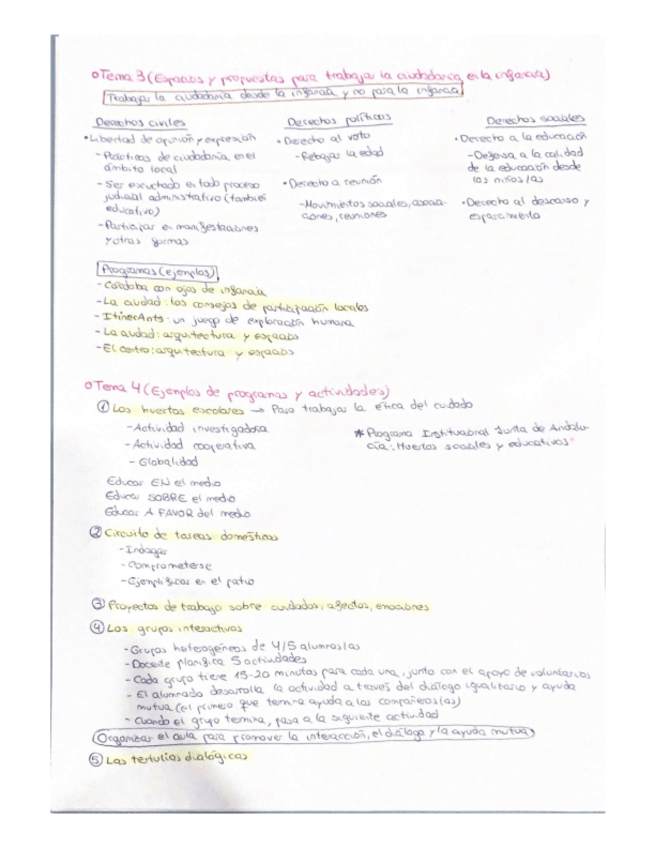 Tema 3 (Espacios y propuestas para trabajar la ciudadanía en la infancia)
Trabajar la ciudadanía desde la infancia y no para la infancia
Derechos civiles
• Libertad de opinión y expresión
- Prácticas de ciudadanía en el
ámbito local
- Ser escuchado en todo proceso
judicial administrativo (también
educativo)
- Participar en manifestaciones
y otras formas
Derechos políticos
• Derecho al voto
- Rebajar la edad
• Derecho a reunión
- Movimientos sociales, asocia-
ciones, reuniones
Derechos sociales
• Derecho a la educación
- Defensa a la calidad
de la educación desde
los niños/as
• Derecho al descanso y
esparcimiento
Programas (ejemplos)
- Córdoba con ojos de infancia
- La ciudad: los consejos de participación locales
- ItinerAnts: un juego de exploración humana
- La ciudad: arquitectura y espacios
- El centro: arquitectura y espacios
Tema 4 (Ejemplos de programas y actividades)
① Los huertos escolares → Para trabajar la ética del cuidado
- Actividad investigadora
- Actividad cooperativa
- Globalidad
* Programa Institucional Junta de Andalu-
cía: Huertos sociales y educativos
Educar EN el medio
Educar SOBRE el medio
Educar A FAVOR del medio
② Circuito de tareas domésticas
- Indagar
- Comprometerse
- Ejemplificar en el patio
③ Proyectos de trabajo sobre cuidados, afectos, emociones
④ Los grupos interactivos
- Grupos heterogéneos de 4/5 alumnos/as
- Docente planifica 5 actividades
- Cada grupo tiene 15-20 minutos para cada una, junto con el apoyo de voluntarios
- El alumnado desarrolla la actividad a través del diálogo igualitario y ayuda
mutua (el primero que termina ayuda a los compañeros/as)
- Cuando el grupo termina, pasa a la siguiente actividad
Organizar el aula para promover la interacción, el diálogo y la ayuda mutua
⑤ Las tertulias dialógicas